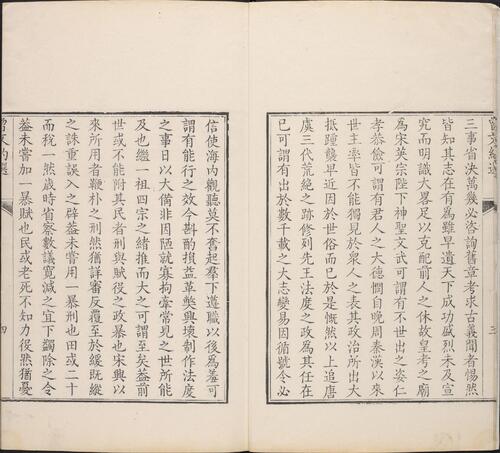 三事省決萬幾必咨詢舊章考求古義聞者惕然
皆知其志在有為雖早遺天下成功盛烈未及宣
究而明識大畧足以克配前人之休故皇考之廟
為宋英宗陛下神聖文武可謂有不世出之姿仁
孝恭儉可謂有君人之大德憫自晚周秦漢以來
世主率皆不能獨見於衆人之表其政治所出大
抵踵襲卑近因於世俗而已於是慨然以上追唐
虞三代荒絶之跡修列先王法度之政為其任在
已可謂有出於數千載之大志變易因循號令必
信使海内觀聽莫不奮起羣下遵職以後為羞可
謂有能行之効今斟酌損益革獘興壞制作法度
之事日以大僃非因陋就寡拘牽常見之世所能
及也繼一祖四宗之緒推而大之可謂至矣葢前
世或不能附其民者刑與賦役之政暴也宋興以
來所用者鞭朴之刑然猶詳審反覆至於緩既縱
之誅重誤入之辟葢未嘗用一暴刑也田或二十
而稅一然歲時省察數議寬減之宜下蠲除之令
葢未嘗加一暴賦也民或老死不知力役然猶憂
三
四